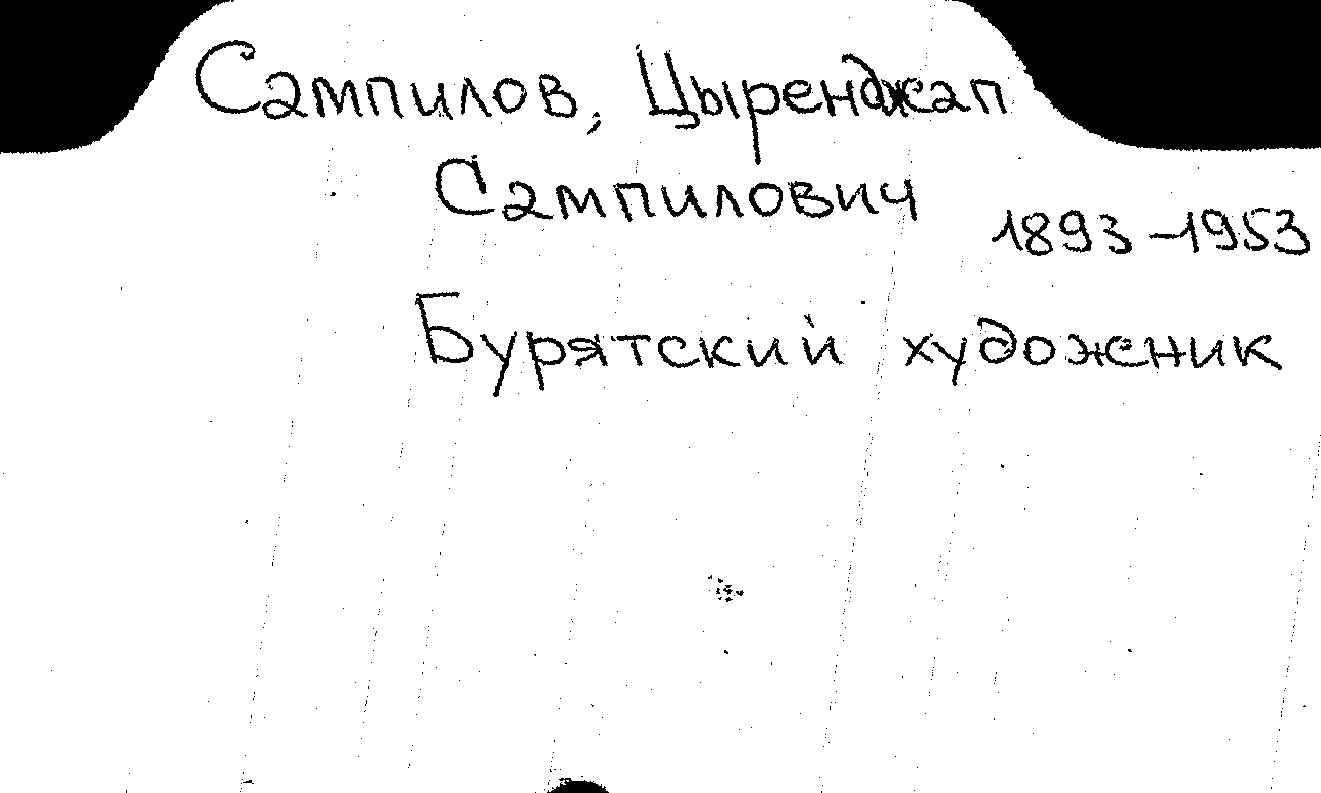 Сампилов, Цыренджап
Сампилович
1893-1953
Бурятский художник